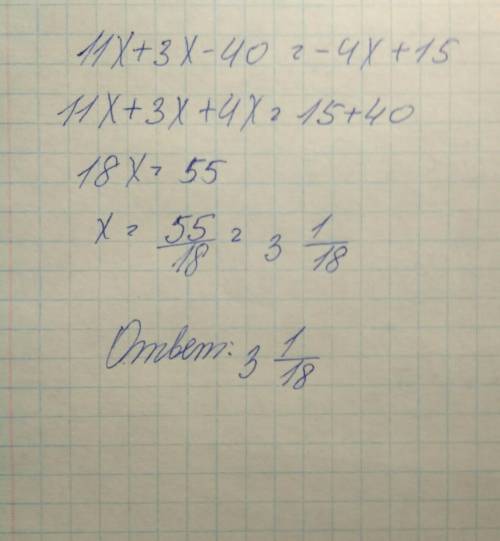 11x+3x-40=-4x+15
11x+3x+4x=15+40
18x=55
x=55/18=3 1/18
Ответ: 3 1/18